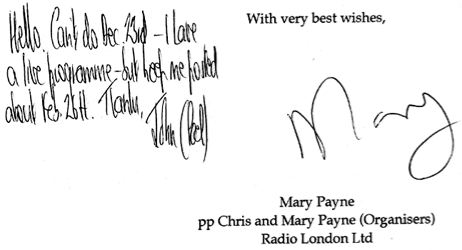 Hello. Can't do Dec. 23rd - I have
a live programme - but keep me posted
about Feb. 25th. Thanks,
John (Peel)
With very best wishes,
Mary
Mary Payne
pp Chris and Mary Payne (Organisers)
Radio London Ltd